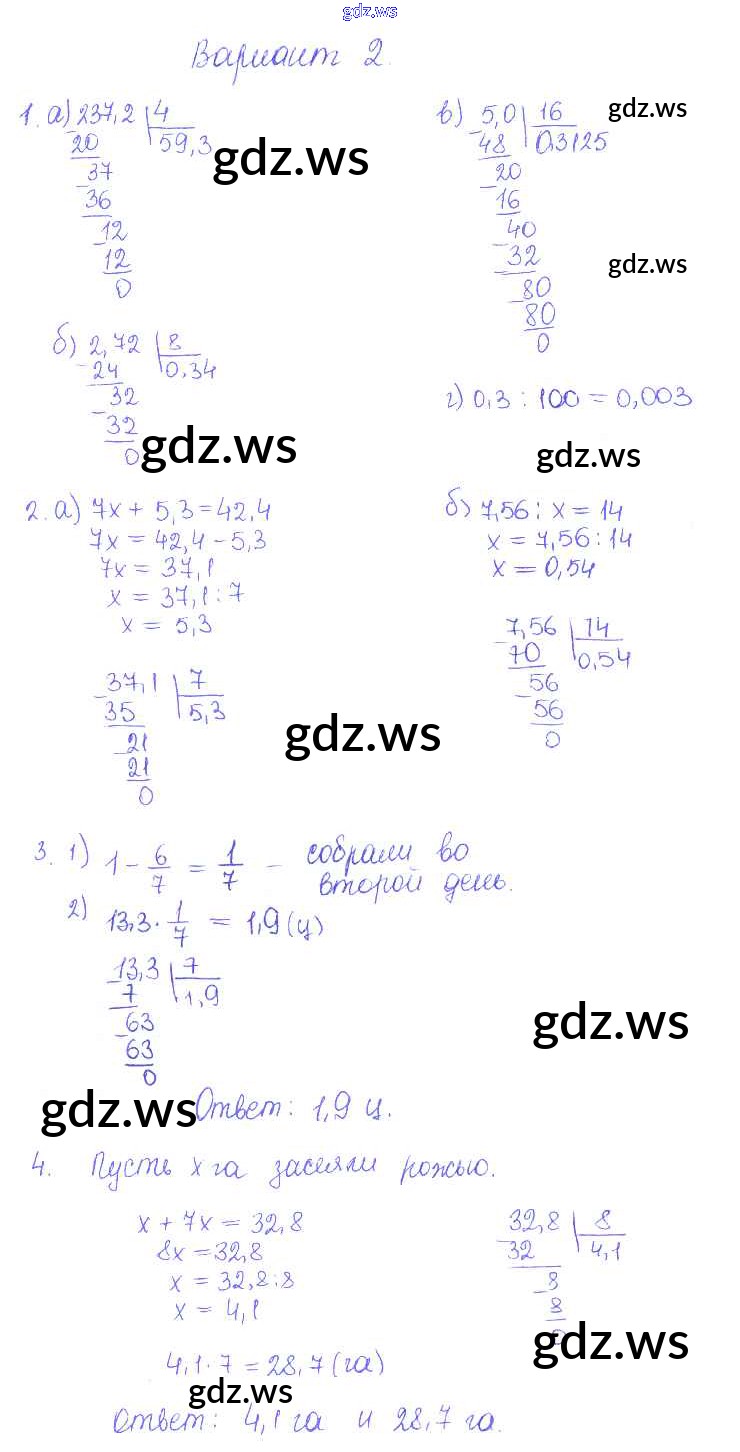 gdz.ws
Вариант 2.
1. а) 237,2 | 4
20 59,3
37
36
12
12
0
gdz.ws
в) 5,0 | 16
48 0,3125
20
16
40
32
80
80
0
gdz.ws
gdz.ws
б) 2,72 | 8
24 0,34
32
32
0
gdz.ws
г) 0,3 : 100 = 0,003
gdz.ws
2. а) 7x + 5,3 = 42,4
7x = 42,4 - 5,3
7x = 37,1
x = 37,1 : 7
x = 5,3
37,1 | 7
35 5,3
21
21
0
gdz.ws
б) 7,56 : x = 14
x = 7,56 : 14
x = 0,54
7,56 | 14
70 0,54
56
56
0
3. 1) 1 - 6/7 = 1/7 - собрали во
второй день.
2) 13,3 · 1/7 = 1,9 (ц)
13,3 | 7
7 1,9
63
63
0
gdz.ws
gdz.ws
Ответ: 1,9 ц.
4. Пусть x га засеяли рожью.
x + 7x = 32,8
8x = 32,8
x = 32,8 : 8
x = 4,1
32,8 | 8
32 4,1
8
8
0
gdz.ws
4,1 · 7 = 28,7 (га)
gdz.ws
Ответ: 4,1 га и 28,7 га.